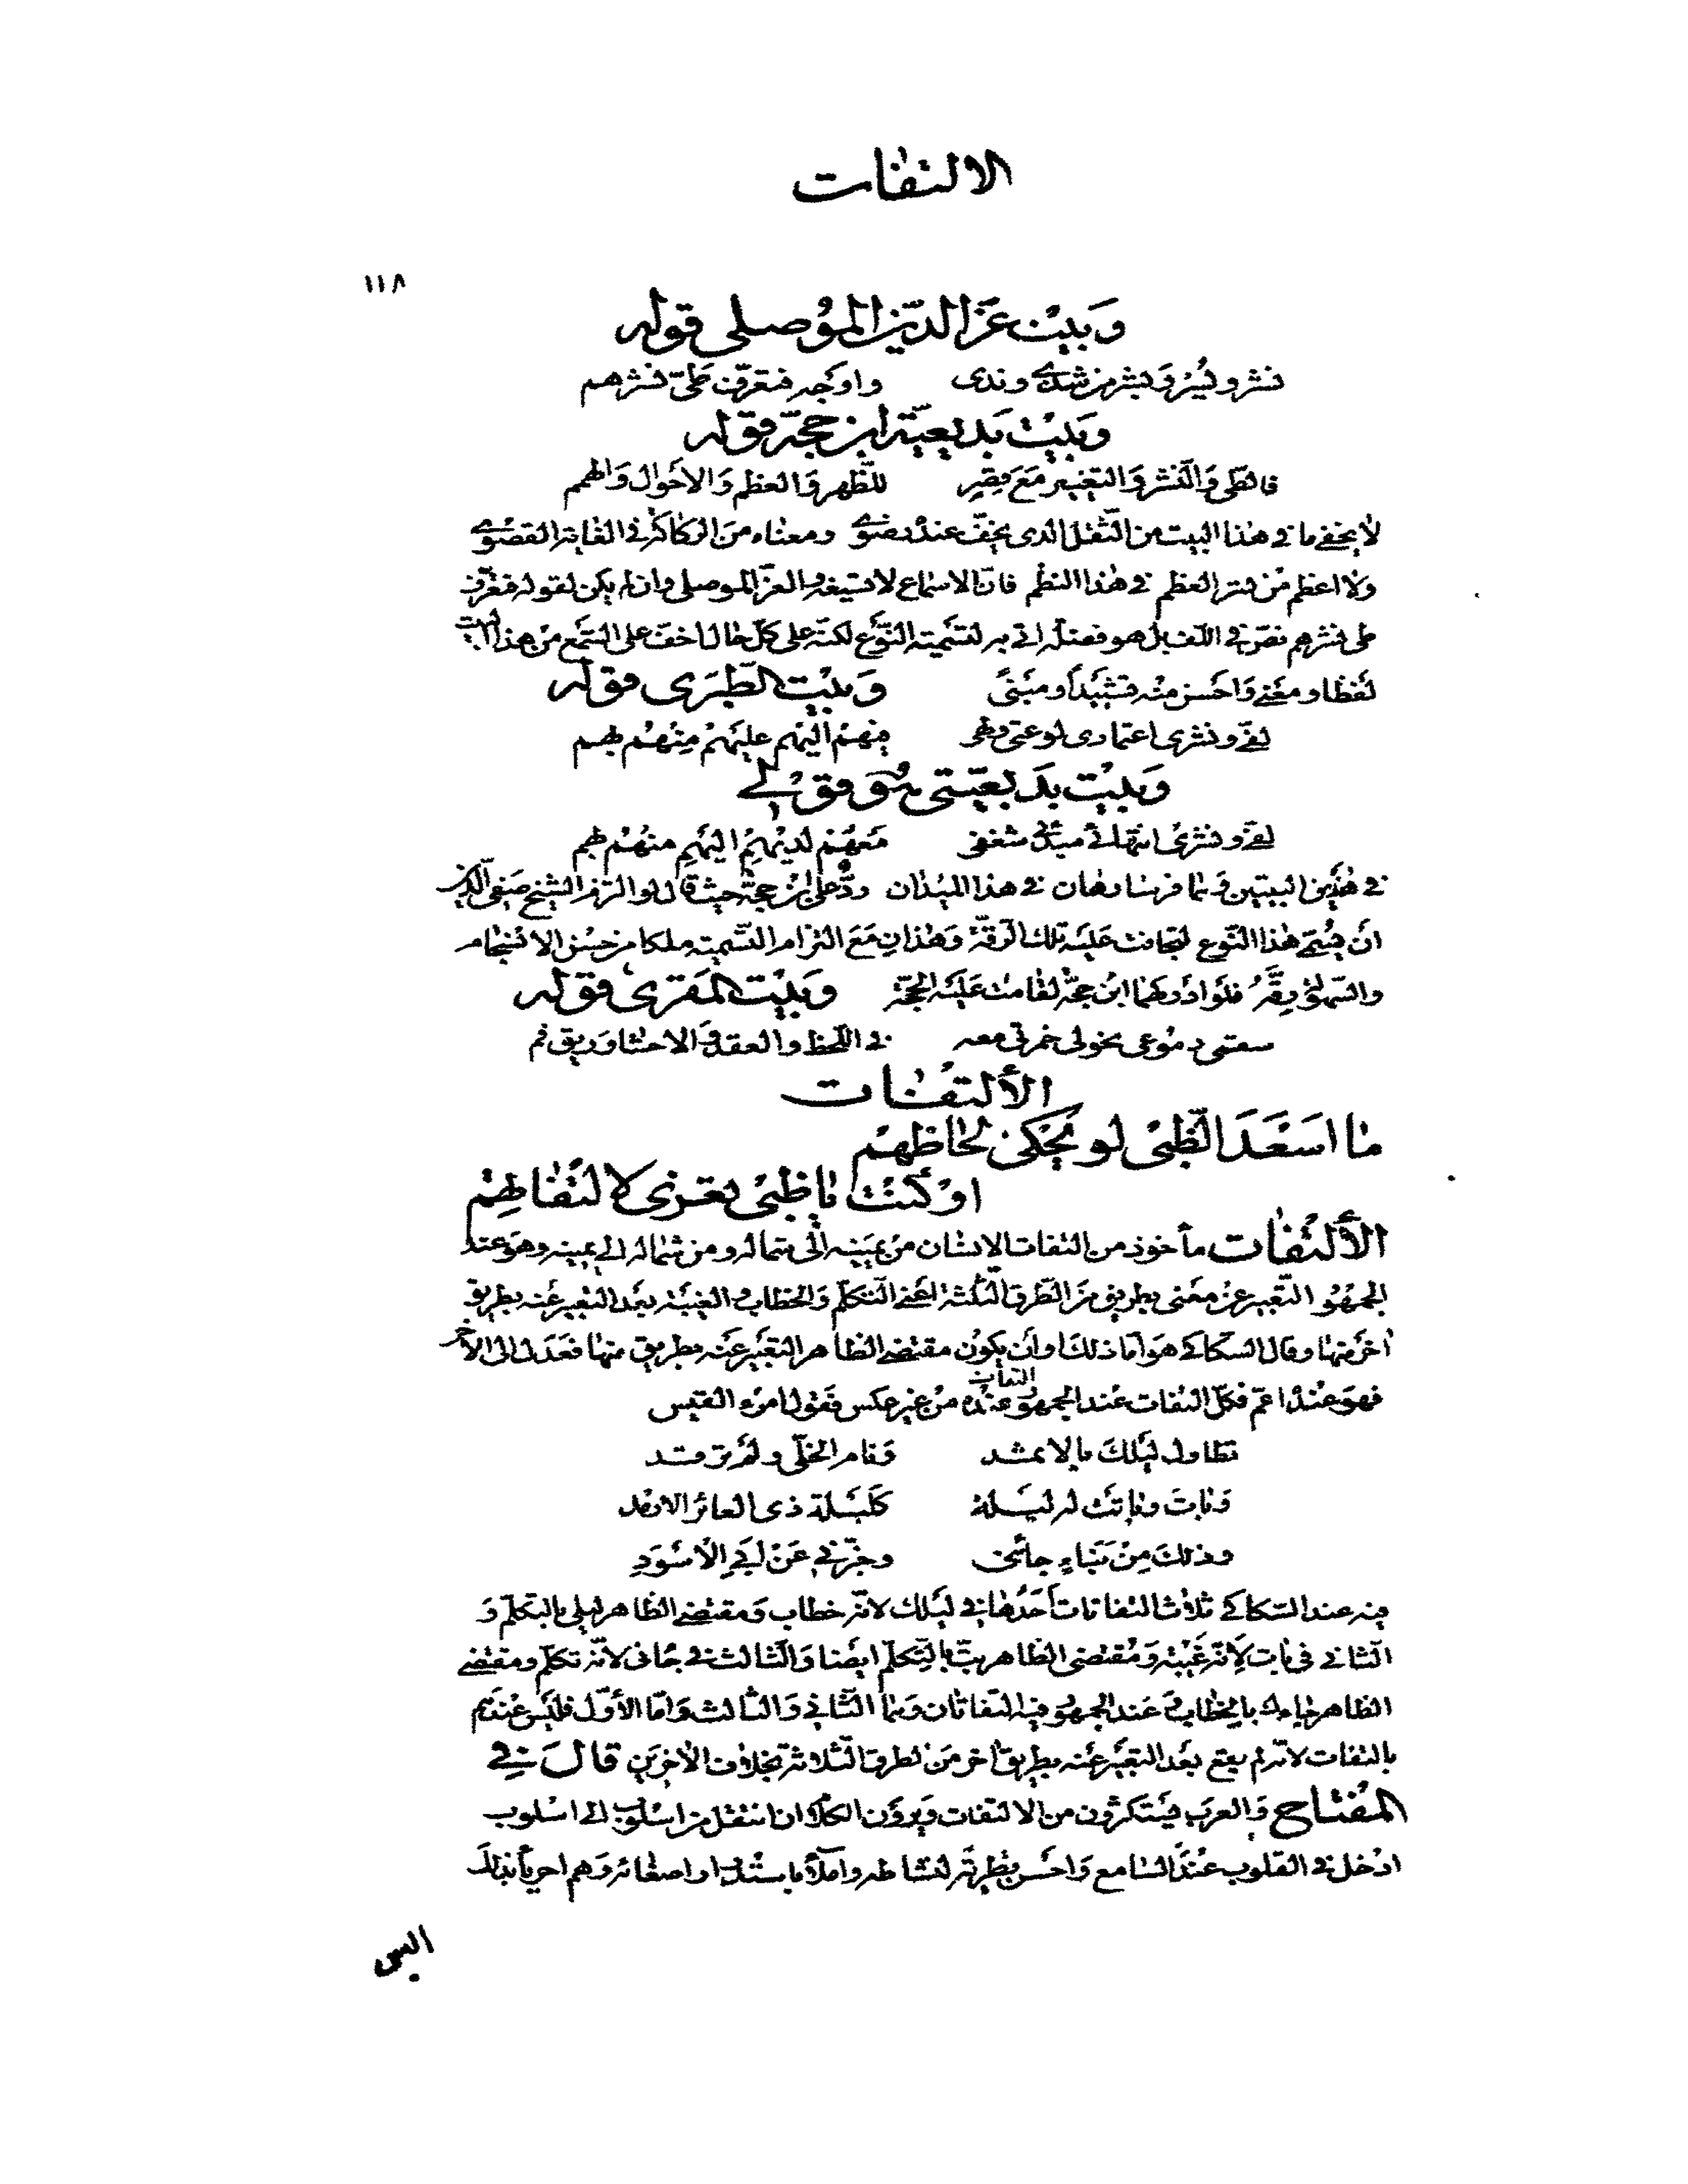 الالتفات
١١٨
وبيت عزّ الدّين الموصلي قوله
نشر ويسر وبشر من شذى وندى واوجه فتعرّف طىّ نشرهم
وبيت بديعيّة ابن حجّة قوله
فالطّى والنّشر والتغيير مع قصر للظّهر والعظم والاحوال والهمم
لا يخفى ما فى هذا البيت من الثّقل الذى يخفّ عنده رضوى ومعناه من الركاكة فى الغاية القصوى
ولا اعظم من العظم فى هذا النظم فانّ الاسماع لا تسيغه والعزّ الموصلى وان لم يكن لقوله فتعرّف
طى نشرهم نصّ فى اللّف بل هو فضلة اتى به لتسمية النّوع لكنّه على كلّ حال اخفّ على السّمع من هذا البيت
لفظا ومعنى واحسن منه تشييداً ومبنىً وبيت الطّبرى قوله
لفّى ونشرى اعتمادى لوعتى ولهى منهم اليهم عليهم منهم بهم
وبيت بديعيّتى هو قولى
لفّى ونشرى انتهائى مبدئى شغفى معهم لديهم اليهم منهم بهم
فى هذين البيتين وهما فرسا رهان فى هذا الميدان ردّ على ابن حجّة حيث قال لو التزم الشيخ صفى الدّين
ان يسمّى هذا النّوع لتجافت عليه تلك الرّقّة وهذان مع التزام التّسمية ملكا من حسن الانسجام
والسّهولة رقّه فلو ادركهما ابن حجّة لقامت عليه الحجّة وبيت المقرى قوله
سقتى دموعى نحولى خمرتى معه فى اللّحظ والعقد والاحشا وريق فم
الألتفات
ما اسعد الظّبى لو يحكى لحاظهم
او كنت يا ظبى تعزى لالتفاتهم
الألتفات مأخوذ من التفات الانسان من يمينه الى شماله ومن شماله الى يمينه وهو عند
الجمهور التّعبير عن معنى بطريق من الطّرق الثّلثة اعنى التّكلّم والخطاب والغيبة بعد التعبير عنه بطريق
اخر منها وقال السكّاكى هو امّا ذلك او ان يكون مقتضى الظاهر التعبير عنه بطريق منها فعدل الى الآخر
فهو عنده اعمّ فكلّ التفات عند الجمهور التفات عنده من غير عكس فقول امرء القيس
تطاول ليلك بالاثمد ونام الخلّى ولم ترقد
وبات وباتت له ليلة كليلة ذى العائر الارمد
وذلك من نباءٍ جاءنى وخبّرته عن ابى الاسودِ
فيه عند السّكاكى ثلاث التفاتات احدها فى ليلك لانّه خطاب ومقتضى الظاهر ليلى بالتكلّم و
الثّانى فى بات لانّه غيبة ومقتضى الظاهر بتّ بالتّكلّم ايضا والثّالث فى جاءنى لانّه تكلّم ومقتضى
الظاهر جاءك بالخطاب وعند الجمهور فيه التفاتان وهما الثّانى والثالث وامّا الأوّل فليس عندهم
بالتفات لانّه لم يقع بعد التعبير عنه بطريق آخر من الطرق الثّلاثة بخلاف الاخرين قال فى
المفتاح والعرب يستكثرون من الالتفات ويرون الكلام اذا انتقل من اسلوب الى اسلوب
ادخل فى القلوب عند السّامع واحسن تطرية لنشاطه واملأ باستدرار اصغائه وهم احرياء بذلك